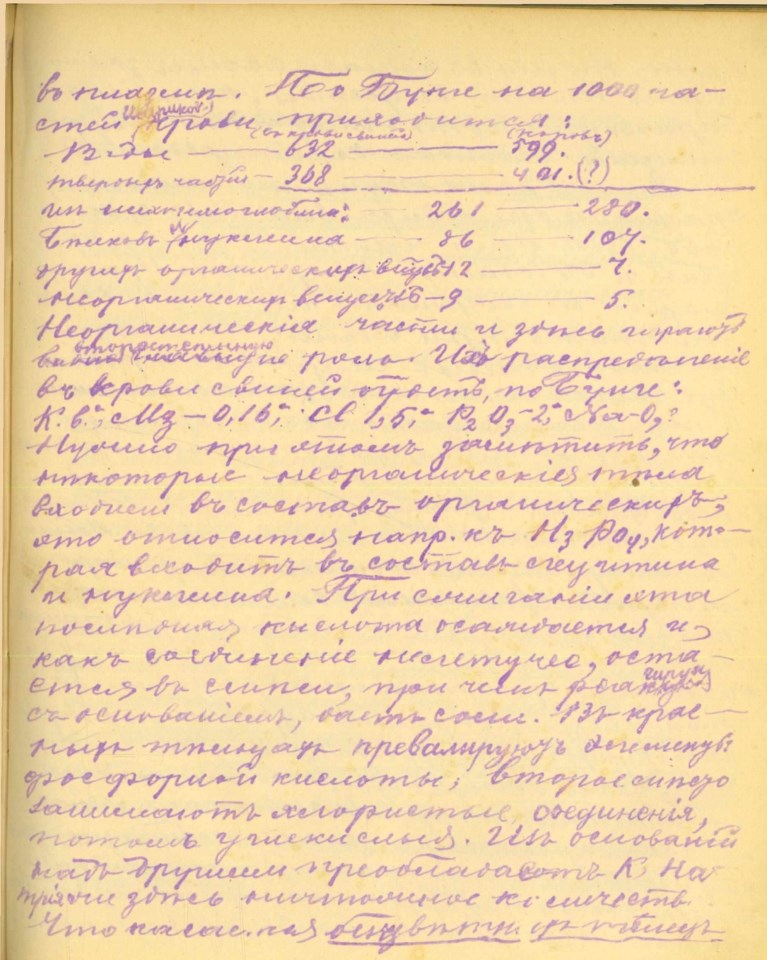 въ плазмѣ. По Бунге на 1000 ча-
стей крови приходится:
(въ крови свиней) (коровъ)
Воды — 632 — 599.
твердыхъ частей — 368 — 401.(?)
изъ нихъ гемоглобина: — 261 — 280.
Бѣлковъ и нуклеина — 86 — 107.
другихъ органическихъ веществъ 12 — 7.
неорганическихъ веществъ — 9 — 5.
Неорганическія части и здѣсь играютъ
второстепенную роль. Ихъ распредѣленіе
въ крови свиней есть, по Бунге:
K. Mg — 0,16; Cl 1,5; P2O5 — 2; Na — 0,?
Нужно при этомъ замѣтить, что
нѣкоторыя неорганическія тѣла
входятъ въ составъ органическихъ;
это относится напр. къ H3PO4, кото-
рая входитъ въ составъ лецитина
и нуклеина. При сжиганіи эта
послѣдняя кислота осаждается и,
какъ соединеніе нелетучее, оста-
ется въ пеплѣ, при чемъ реагируя
съ основаніемъ, даетъ соли. Въ крас-
ныхъ тѣльцахъ превалируютъ
фосфорной кислоты; второе мѣсто
занимаютъ хлористыя соединенія,
потомъ углекислыя. Изъ основаній
надъ другими преобладаетъ K. На-
трія же здѣсь ничтожное количество.
Что касается безцвѣтныхъ тѣлецъ